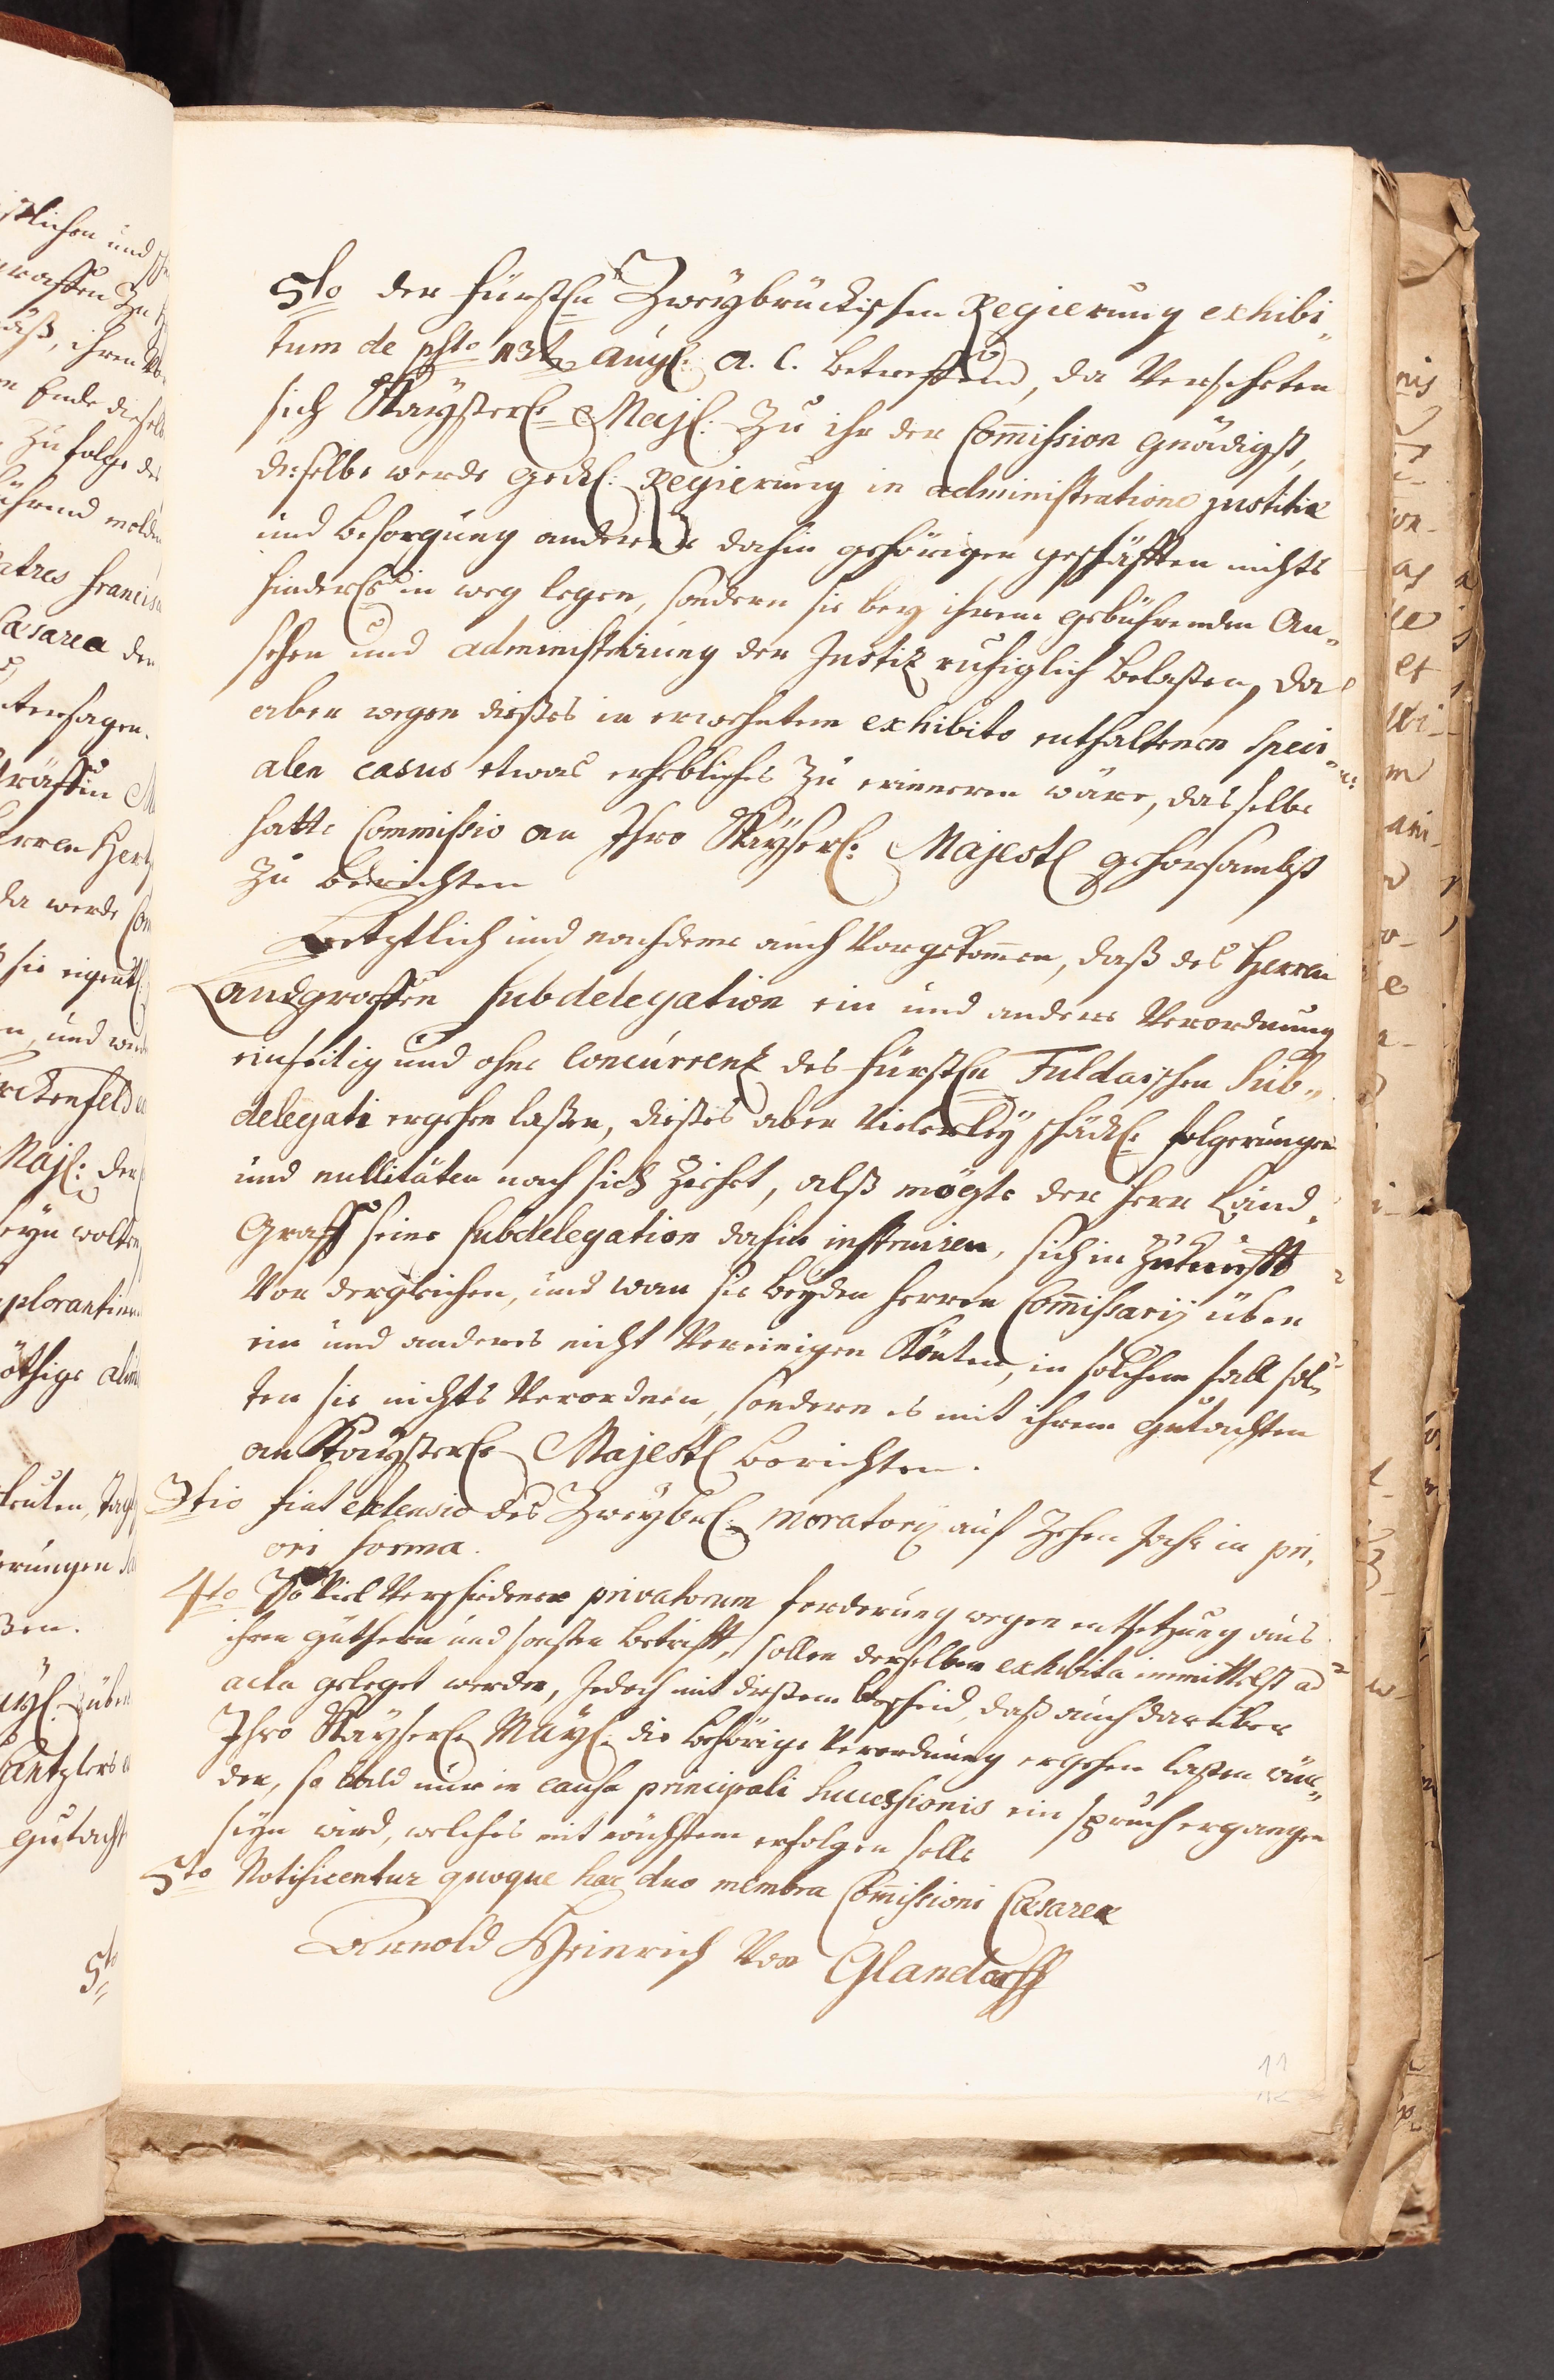 5to der fürstln Zweybrückischen Regierung exhibi„
tum de psto 13t Augl: a. c. betreffend, da verseheten
sich Kaysterl: Majl: zu ihr der Commission gnädigst,
dieselbe werde gedl: Regierung in administratione justitiæ
und besorgung anderer dahin gehörigen geschäfften nichts
hinderl: in weg legen, sondern sie bey ihrem gebührenden An„
sehen und administrirung der Justiz ruhiglich belaßen, da
aber wegen dießes in erwehntem exhibito enthaltenen speci„
alen casus etwas erhebliches zu erinneren wäre, dasselbe
hatte Commissio an Ihro Kayserl: Majestl gehorsambst
zu berichten
Letztlich und nachdeme auch vorgekommen, daß des Herren
Landgraffen subdelegation ein und andere verordnung
einseitig und ohne concurrenz des fürstln Fuldaischen Sub„
delegati ergehen laßen, dießes aber vielerley schädl: folgerungen
und nullitäten nach sich ziehet, alß mögte der Herr Land„
Graff seine subdelegation dahin instruiren, sich in Zukunfft
von dergleichen, und wan sie beyden herren Commissarij über
ein und anderes nicht vereinigen könten, in solchem fall sol„
ten sie nichts verordnen, sondern es mit ihrem gutachten
an Kaysterl: Majestl berichten.
3tio fiat extensio des Zweybrl: moratorij auf Zehen Jahr in pri„
ori forma.
4to So viel verschiedener privatorum forderung wegen entsetzung aus
ihren güthern und sonsten betrifft, sollen derselben exhibita immittelst ad
acta geleget werden, Jedoch mit dießem bescheid, daß auch darüber
Ihro Kayserl: Mayl: die behörige verordnung ergehen laßen wür„
den, so bald nur in causa principali successionis ein spruch ergangen
seyn wird, welches mit nächstem erfolgen solle
5to Notificentur quoque hac duo membra Commissioni Cæsareæ
Arnold Heinrich von Glandorff
11